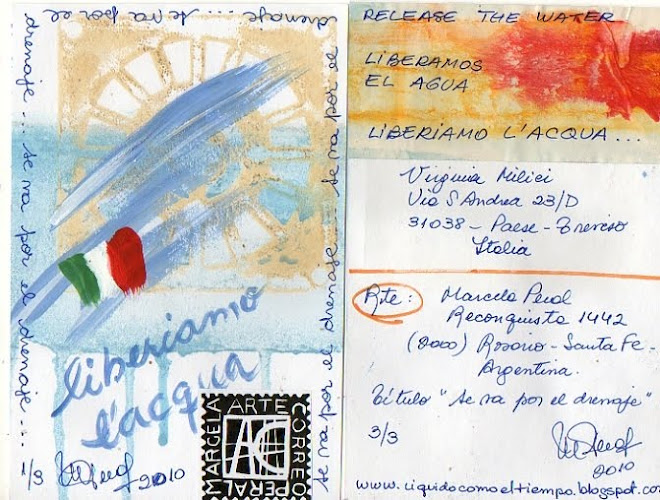 drenaje... se va por el drenaje...
... se va por el
drenaje...
se va por el drenaje... se va por el
liberiamo
l'acqua
1/3
2010
MARCELA
ARTE
CORREO
PERAL
AC
RELEASE THE WATER
LIBERAMOS
EL AGUA
LIBERIAMO L'ACQUA...
Virginia Milici
Via S Andrea 23/D
31038 - Paese - Treviso
Italia
Rte: Marcela Peral
Reconquista 1442
(2000) Rosario - Santa Fe -
Argentina.
Título "se va por el drenaje"
3/3
2010
www.liquidocomoeltiempo.blogspot.co